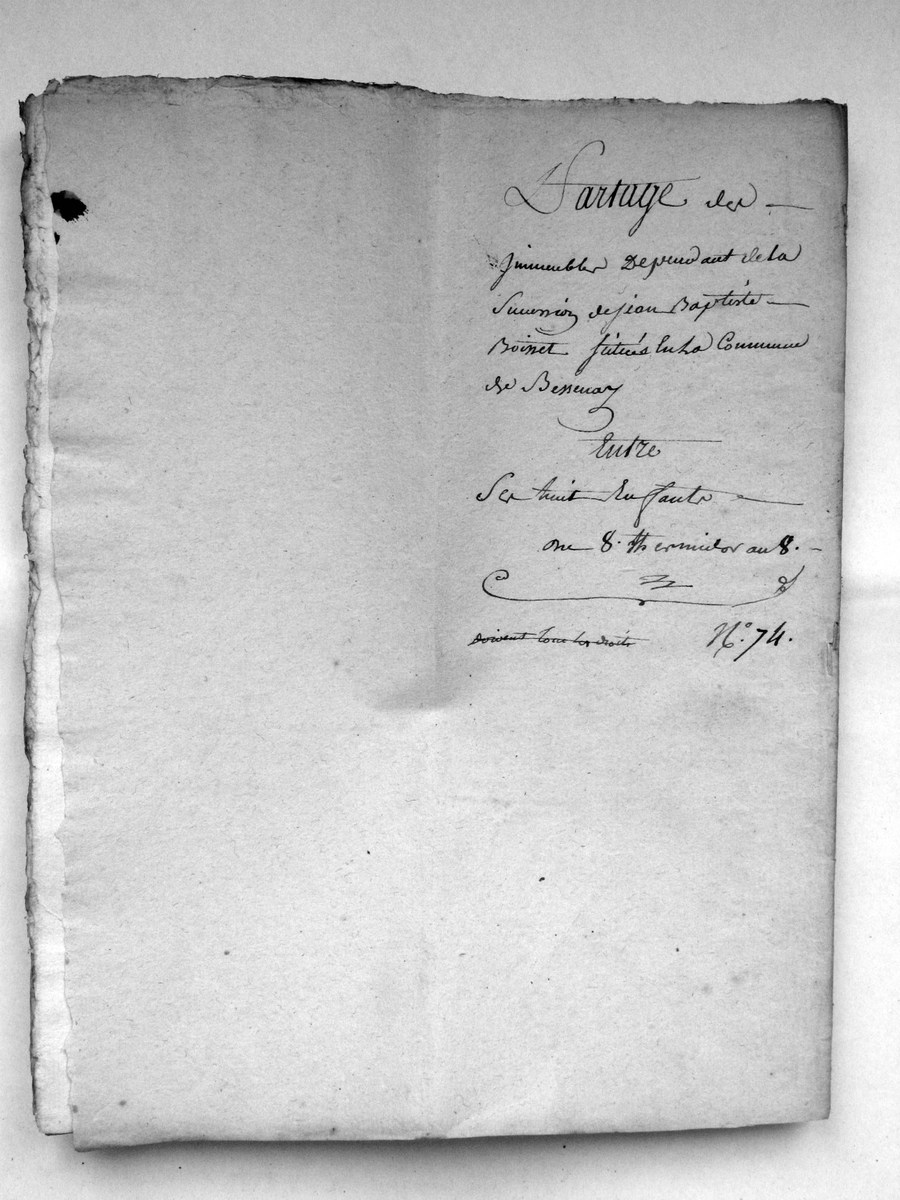 Partage des
jmmeubles Dependant de la
Succession de jean Baptiste
Boisset situés En La Commune
de Bessenay
Entre
Ses huit Enfants
du 8. thermidor an 8.
doivent tous les droits N.° 74.